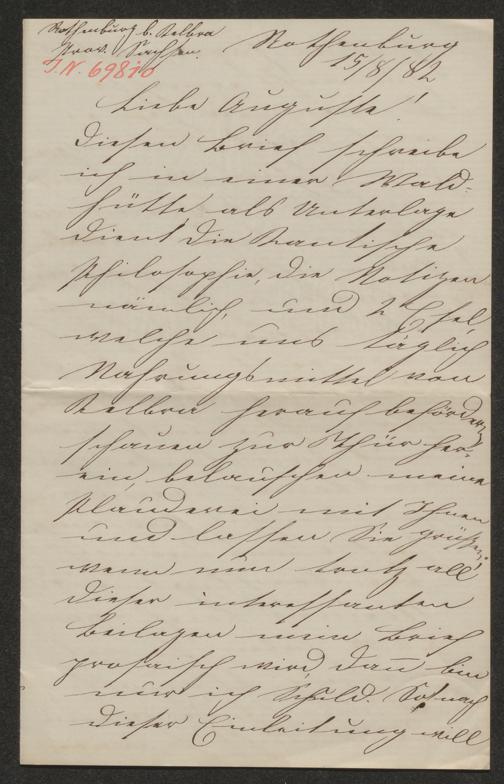 Rothenburg b. Kelbra
Prov. Sachsen.
J.N. 69810
Rothenburg
15/8/82
Liebe Auguste!
Diesen Brief schreibe
ich in einer Wald-
hütte, als Unterlage
dient die Kantische
Philosophie, die Notizen
nämlich, und 2 Esel
welche uns täglich
Nahrungsmittel von
Kelbra herauf befördern
schauen zur Thür her-
ein, belauschen meine
Plauderei mit Ihnen
und lassen Sie grüßen;
wenn nun trotz all'
dieser interessanten
Beilagen mein Brief
prosaisch wird, dann bin
nur ich Schuld. So nach
dieser Einleitung will